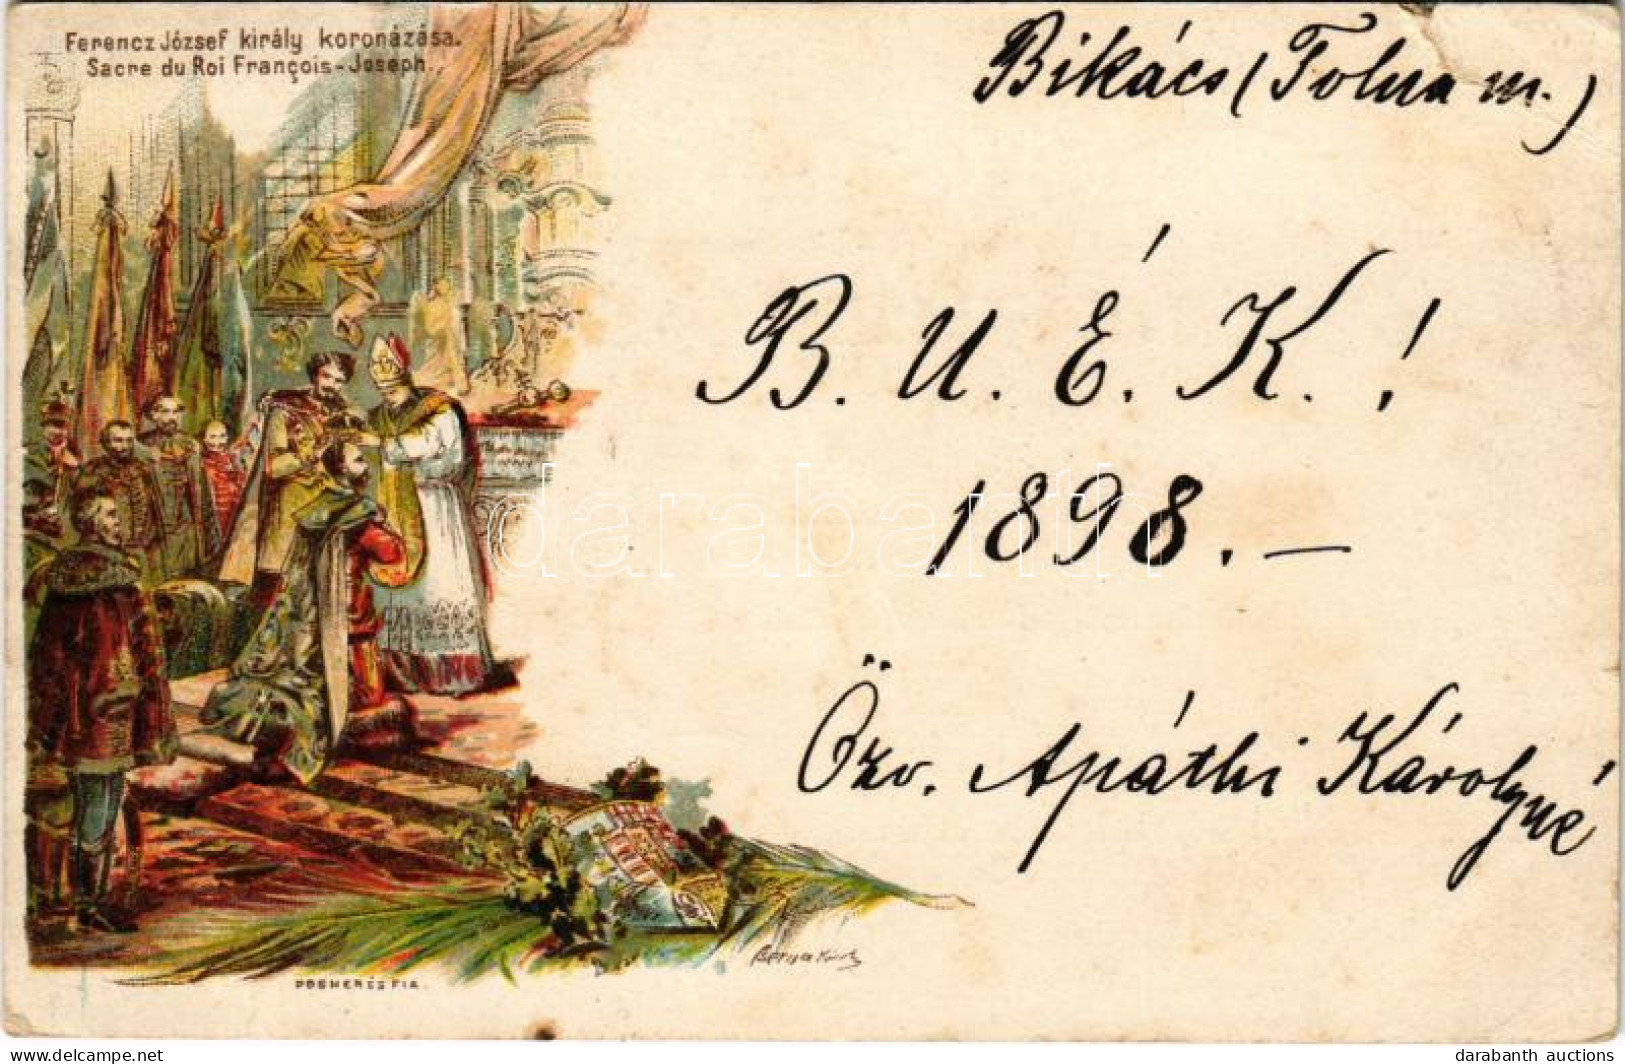 Ferencz József király koronázása.
Sacre du Roi François-Joseph.
Bikács (Tolna m.)
B. U. É. K. !
1898. —
Özv. Apáthi Károlyné
POSNER ÉS FIA.
darabanth
darabanth auctions
www.delcampe.net